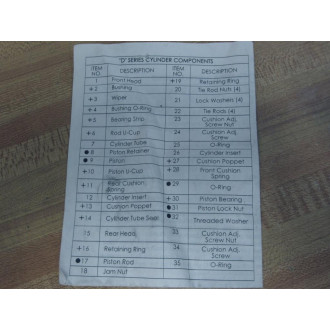 "D" SERIES CYLINDER COMPONENTS
ITEM NO. DESCRIPTION ITEM NO. DESCRIPTION
1 Front Head +19 Retaining Ring
+2 Bushing 20 Tie Rod Nuts (4)
+3 Wiper 21 Lock Washers (4)
+4 Bushing O-Ring 22 Tie Rods (4)
+5 Bearing Strip 23 Cushion Adj. Screw Nut
+6 Rod U-Cup 24 Cushion Adj. Screw
7 Cylinder Tube 25 O-Ring
●8 Piston Retainer 26 Cylinder Insert
●9 Piston +27 Cushion Poppet
+10 Piston U-Cup +28 Front Cushion Spring
+11 Rear Cushion Spring ●29 O-Ring
12 Cylinder Insert +30 Piston Bearing
+13 Cushion Poppet ●31 Piston Lock Nut
+14 Cylinder Tube Seals ●32 Threaded Washer
15 Rear Head 33 Cushion Adj. Screw Nut
+16 Retaining Ring 34 Cushion Adj. Screw
●17 Piston Rod 35 O-Ring
18 Jam Nut